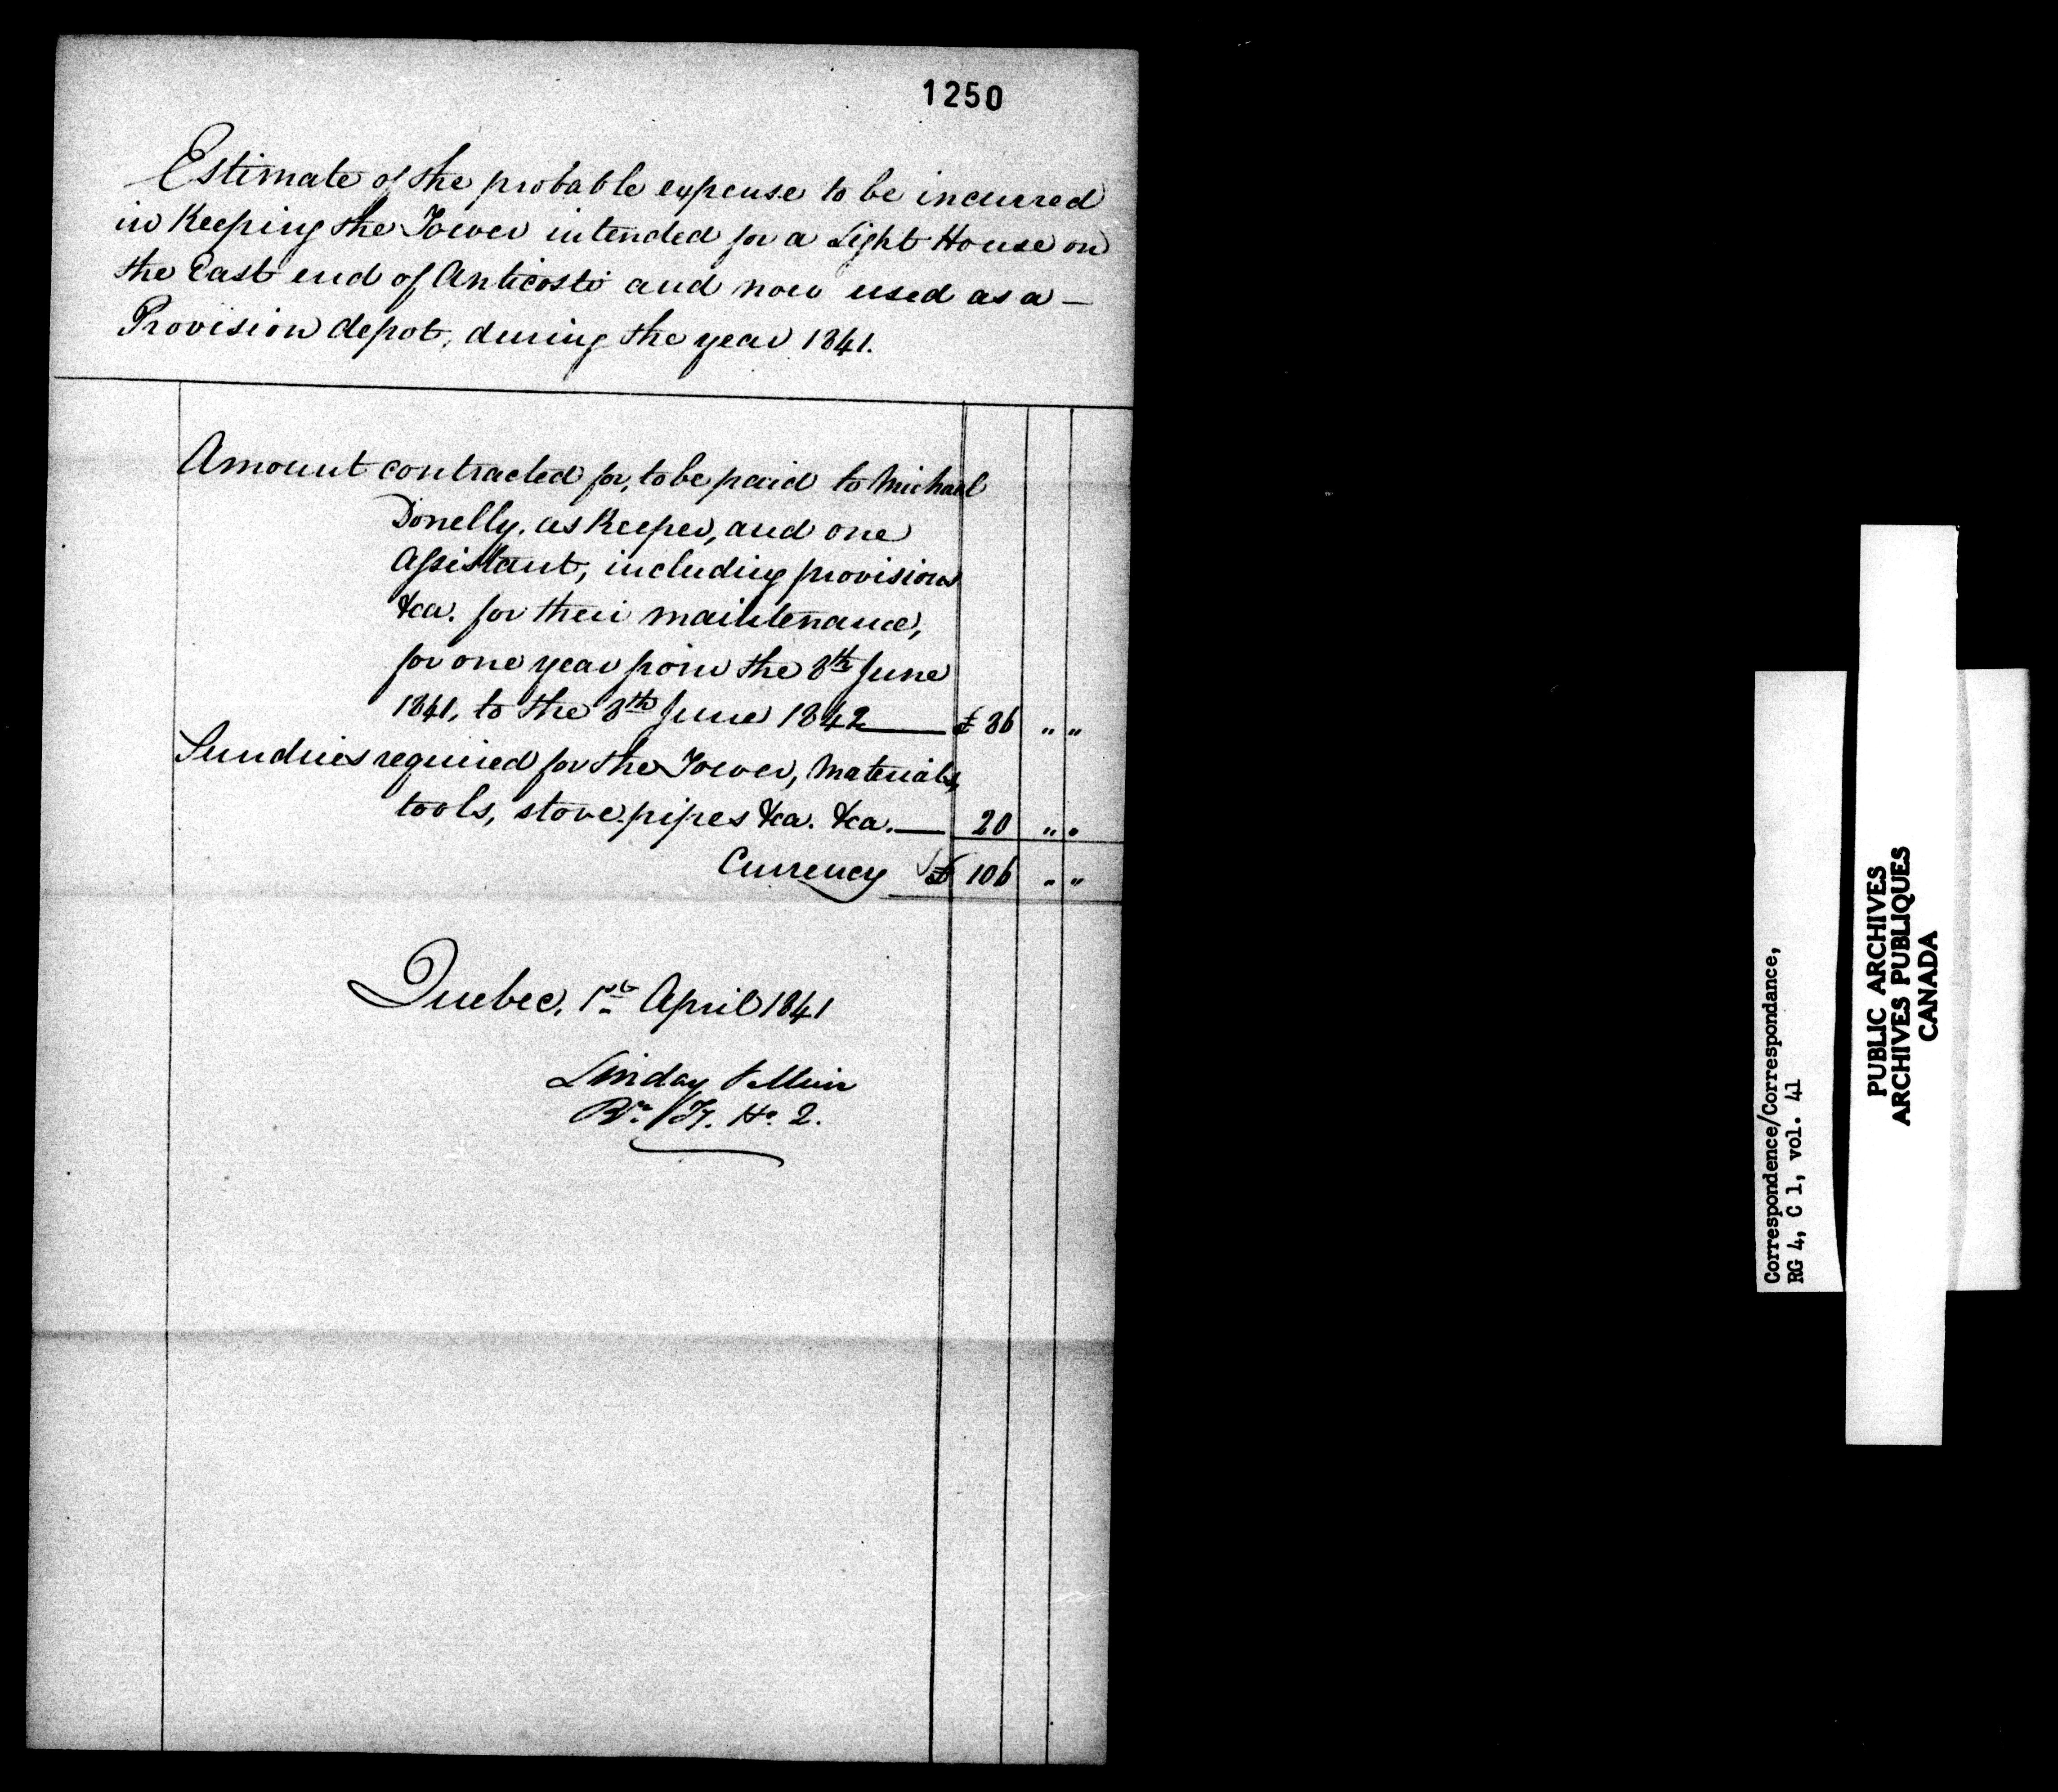 1250
Estimate of the probable expense to be incurred
in Keeping the Tower intended for a Light House on
the East end of Anticosti and now used as a —
Provision depot, during the year 1841.
Amount contracted for, to be paid to Michael
Donelly, as Keeper, and one
Assistant, including provisions
&ca. for their maintenance,
for one year from the 8th June
1841, to the 8th June 1842 — £ 86 " "
Sundries required for the Tower, Materials,
tools, stove pipes &ca. &ca. — 20 " "
Currency £ 106 " "
Quebec, 1st April 1841
Lindsay &
Tr. Ho. Q.
Correspondence/Correspondance,
RG 4, C 1, vol. 41
PUBLIC ARCHIVES
ARCHIVES PUBLIQUES
CANADA